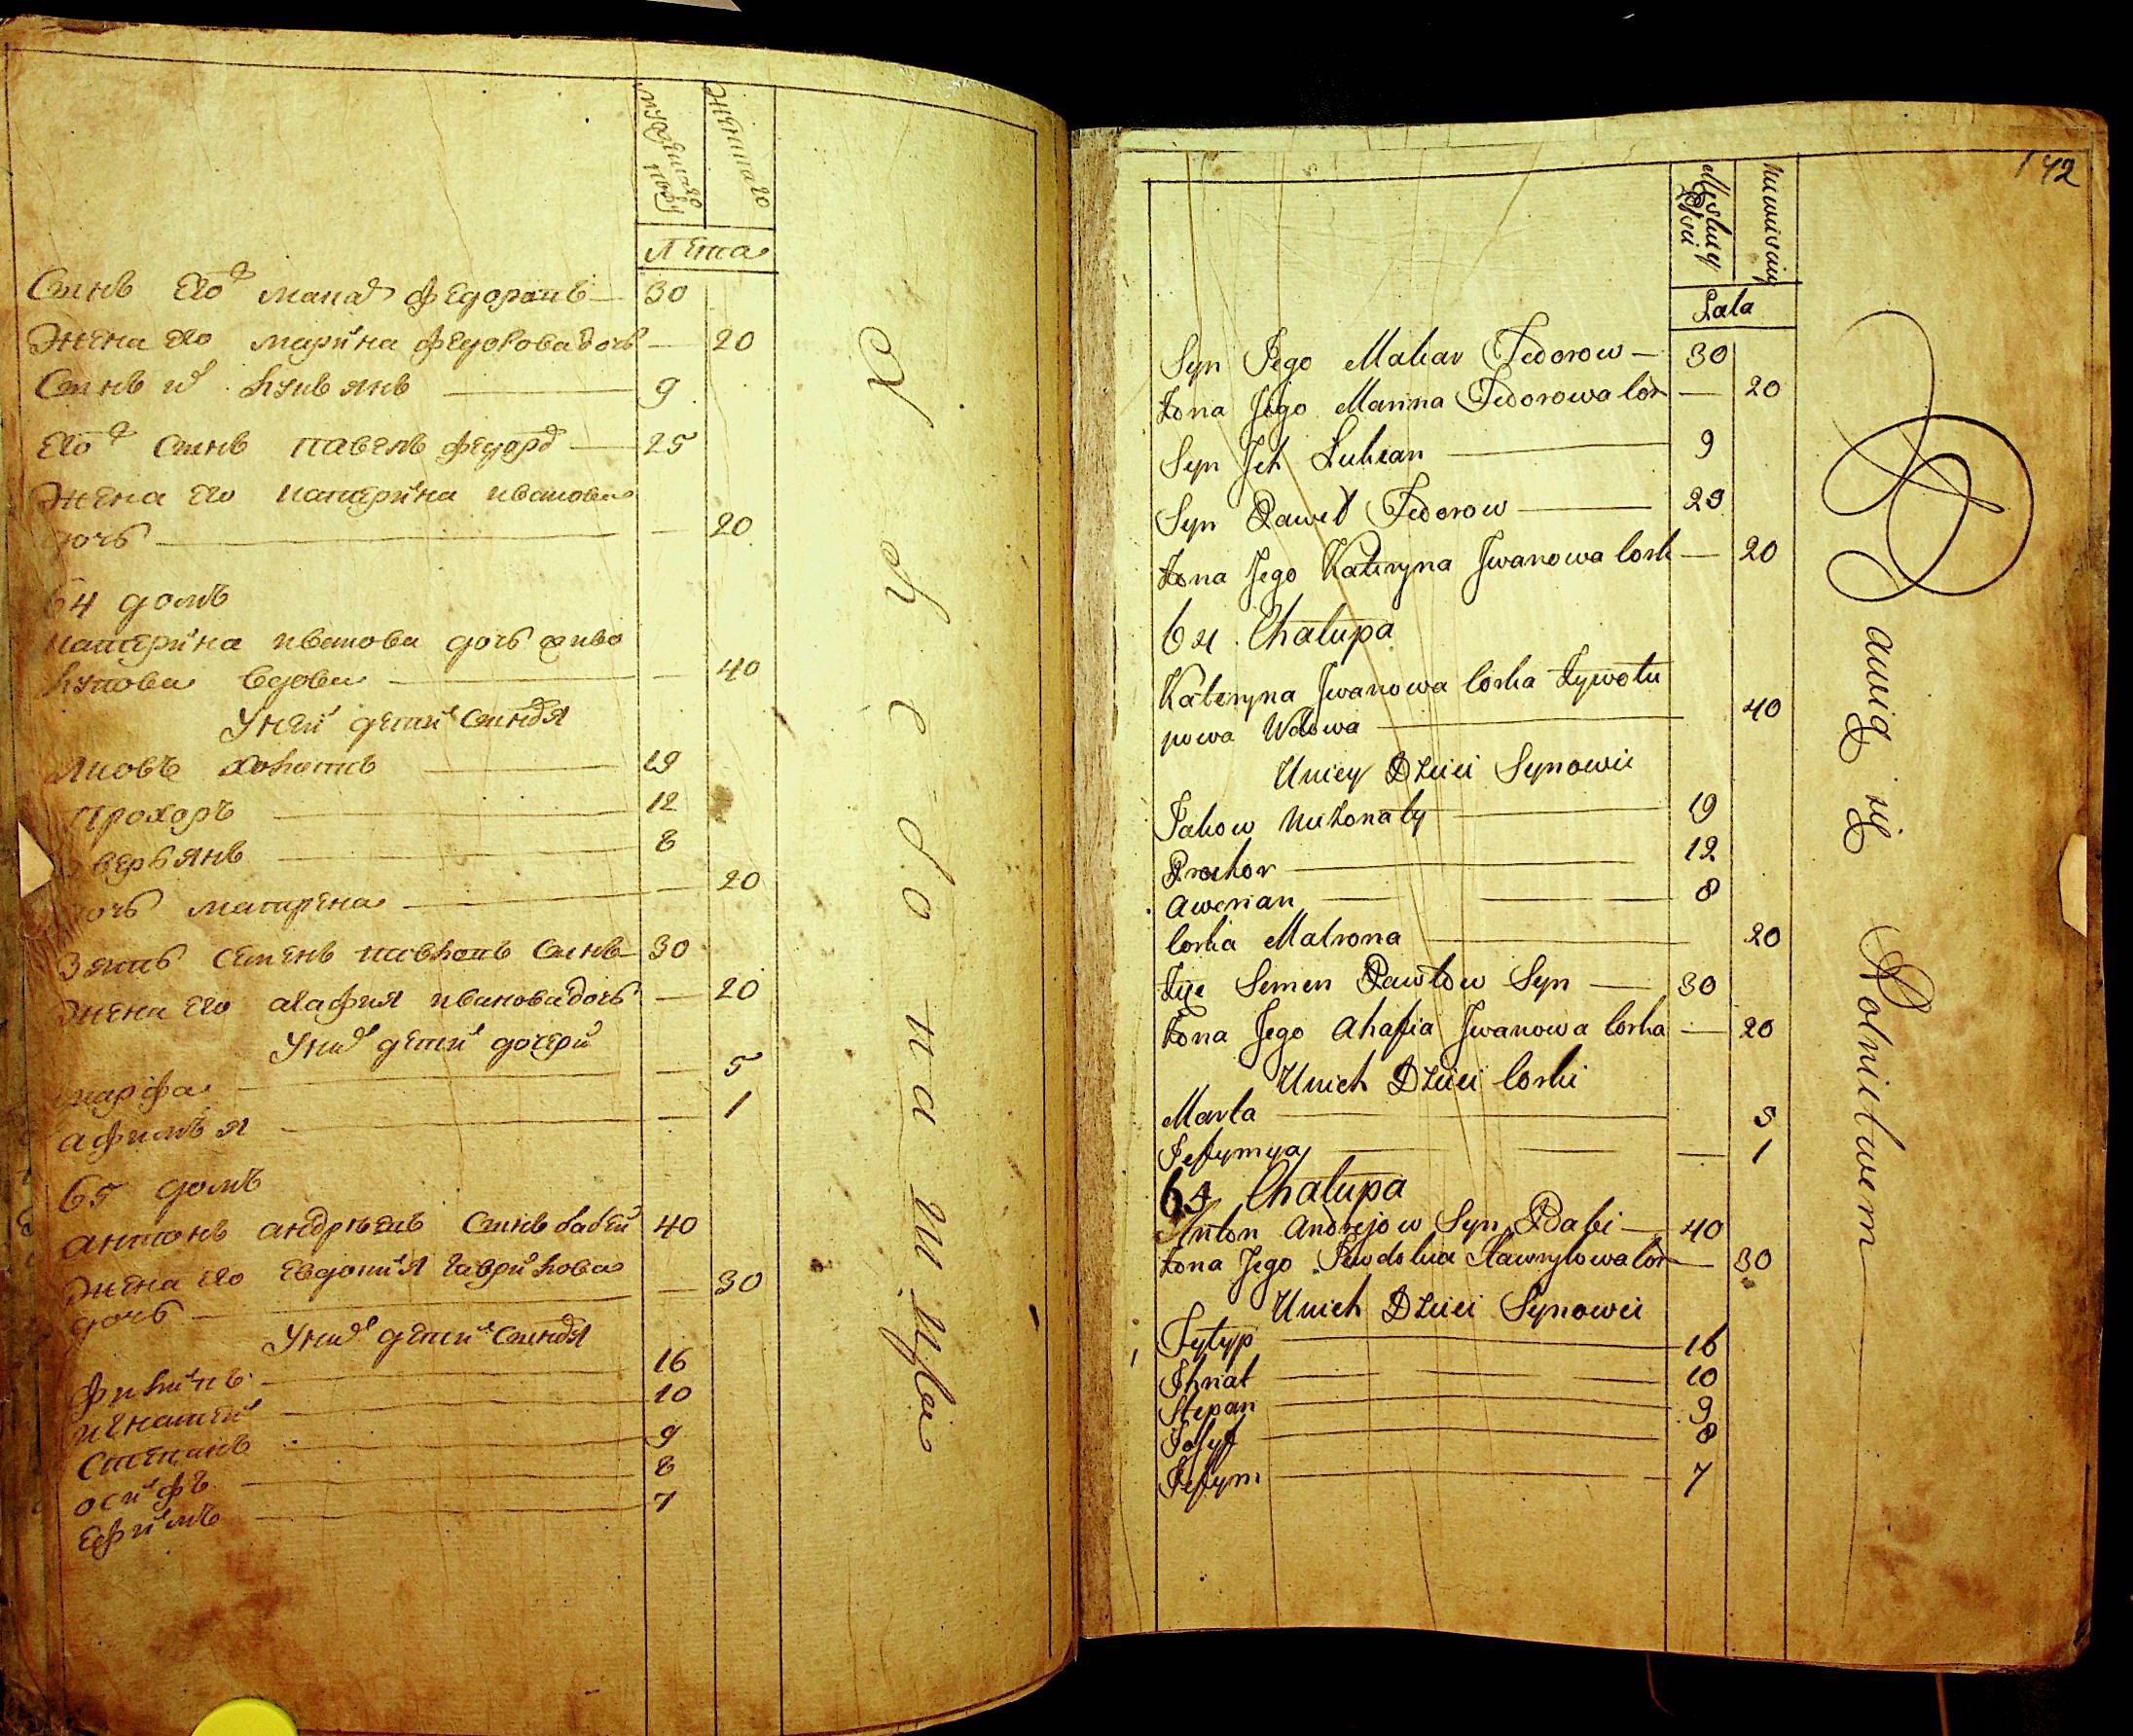 мужеска
полу
женска
Лета
Синъ его макар федоровъ — 30
Жена его марина федорова дочь — 20
Синъ их лукъянъ — 9
его Синъ павелъ федоров — 25
Жена его катерина иванова
дочь — 20
64 домъ
катерина иванова дочь живо
тупова вдова — 40
У ней дети Синовя
Яковъ холостъ — 19
прохоръ — 12
аверьянъ — 8
дочь матрена — 20
Зять семенъ павловъ Синъ — 30
Жена его агафия иванова дочь — 20
У них дети дочери
марфа — 5
афимья — 1
65 домъ
антонъ андреевъ Синъ бабей 40
Жена его евдокия гаврилова
дочь — 30
У них дети Синовя
филипъ — 16
игнатей — 10
степанъ — 9
осифъ — 8
ефимъ — 7
142
Męskiey
Płci
Niewisciey
Lata
Syn Jego Makar Fedorow — 30
Żona Jego Marina Fedorowa Cór — 20
Syn Jch Lukian — 9
Syn Paweł Fedorow — 25
Żona Jego Kateryna Jwanowa Cork — 20
64 Chałupa
Kateryna Jwanowa Corka Żywotu
powa Wdowa — 40
Uniey Dzieci Synowie
Jakow Nieżonaty — 19
Prochor — 12
Awerian — 8
Corka Matrona — 20
Semen Pawłow Syn — 30
Żona Jego Ahafia Jwanowa Corka — 20
Unich Dzieci Corki
Marta — 5
Jefymya — 1
65 Chałupa
Anton Andrejow Syn Babi — 40
Żona Jego Jewdokia Hawryłowa Cór — 30
Unich Dzieci Synowie
Fyłyp — 16
Jhnat — 10
Stepan — 9
Josyf — 8
Jefym — 7
Bawią się Rolnictwem